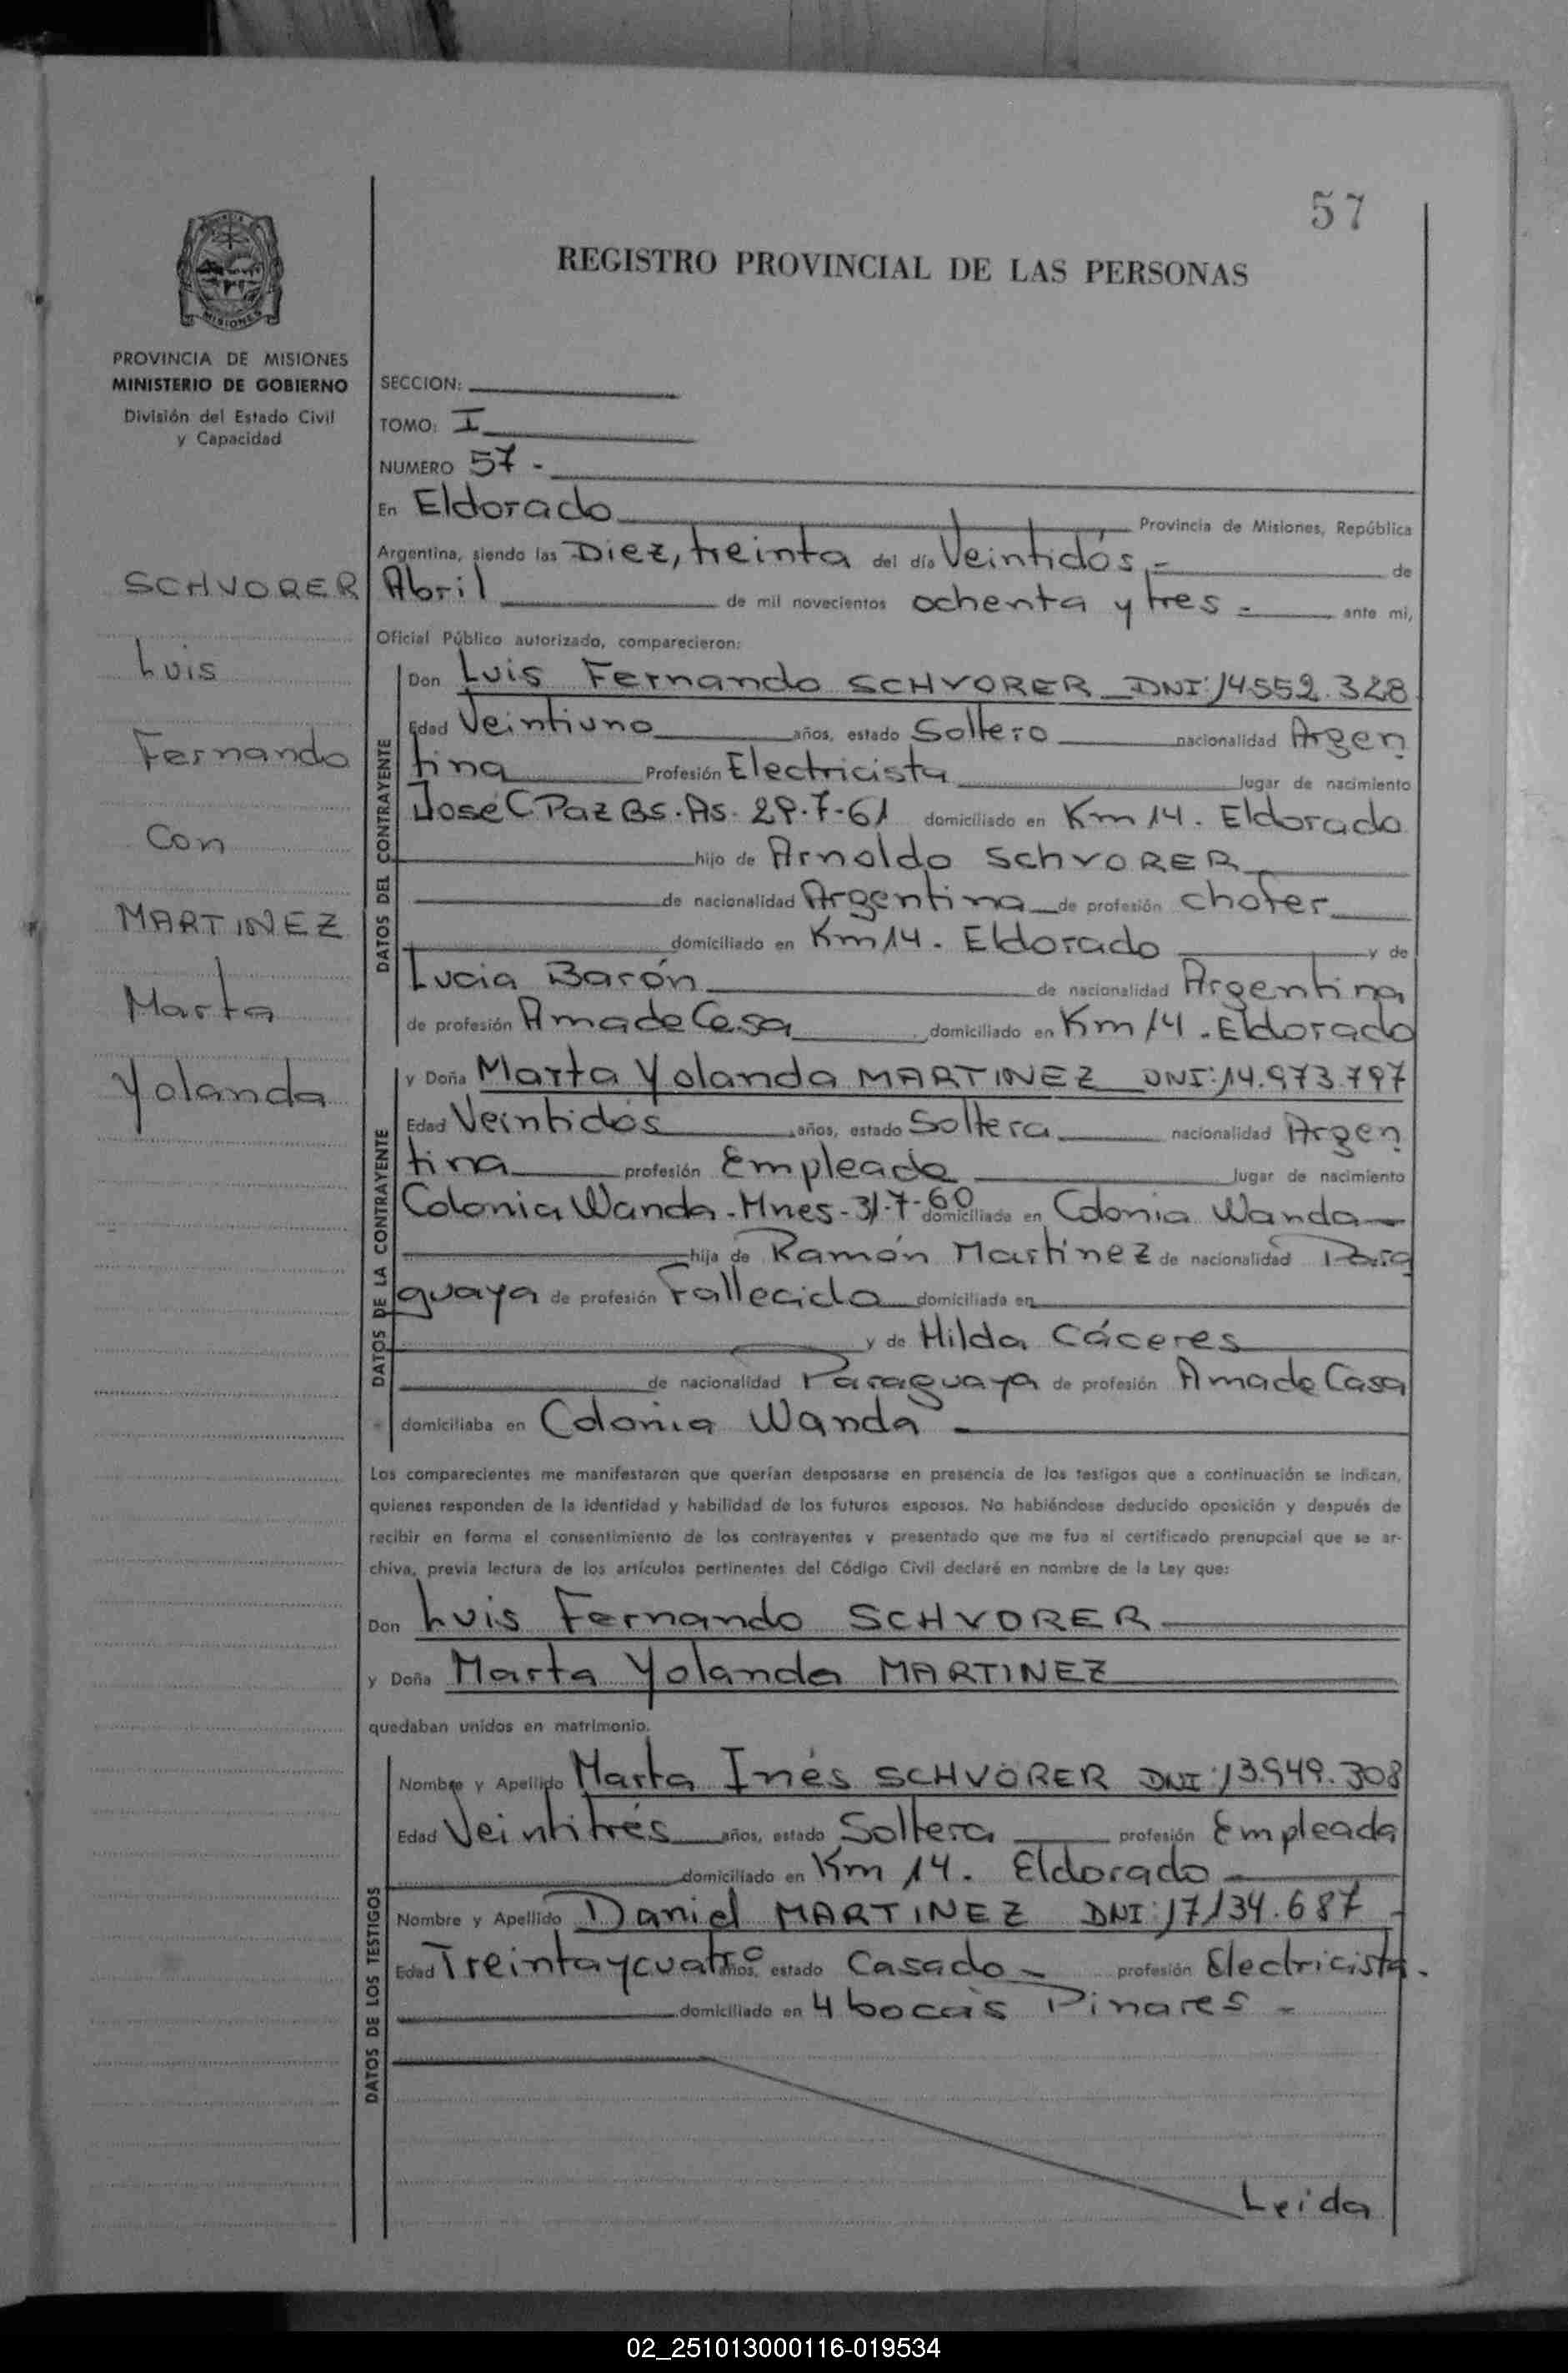 57
REGISTRO PROVINCIAL DE LAS PERSONAS
MISIONES
PROVINCIA DE MISIONES
MINISTERIO DE GOBIERNO
División del Estado Civil
y Capacidad
SCHVORER
Luis
Fernando
Con
MARTINEZ
Marta
Yolanda
SECCION:
TOMO: I
NUMERO 57 -
En Eldorado Provincia de Misiones, República
Argentina, siendo las Diez, treinta del día Veintidós - de
Abril de mil novecientos ochenta y tres - ante mi,
Oficial Público autorizado, comparecieron:
DATOS DEL CONTRAYENTE
Don Luis Fernando SCHVORER DNI: 14552.328
Edad Veintiuno años, estado Soltero nacionalidad Argen
tina Profesión Electricista lugar de nacimiento
José C Paz Bs. As. 29-7-61 domiciliado en Km 14. Eldorado
hijo de Arnoldo SchVORER
de nacionalidad Argentina de profesión chofer
domiciliado en Km 14. Eldorado y de
Lucia Barón de nacionalidad Argentina
de profesión Ama de Casa domiciliado en Km 14 - Eldorado
DATOS DE LA CONTRAYENTE
y Doña Marta Yolanda MARTINEZ DNI: 14.973.797
Edad Veintidós años, estado Soltera nacionalidad Argen
tina profesión Empleada lugar de nacimiento
Colonia Wanda - Mnes - 31-7-60 domiciliada en Colonia Wanda
hija de Ramón Martinez de nacionalidad Para
guaya de profesión Fallecido domiciliada en
y de Hilda Cáceres
de nacionalidad Paraguaya de profesión Ama de Casa
domiciliaba en Colonia Wanda -
Los comparecientes me manifestaron que querían desposarse en presencia de los testigos que a continuación se indican,
quienes responden de la identidad y habilidad de los futuros esposos. No habiéndose deducido oposición y después de
recibir en forma el consentimiento de los contrayentes y presentado que me fue el certificado prenupcial que se ar-
chiva, previa lectura de los artículos pertinentes del Código Civil declaré en nombre de la Ley que:
Don Luis Fernando SCHVORER
y Doña Marta Yolanda MARTINEZ
quedaban unidos en matrimonio.
DATOS DE LOS TESTIGOS
Nombre y Apellido Marta Inés SCHVORER DNI: 13.949.308
Edad Veintitrés años, estado Soltera profesión Empleada
domiciliado en Km 14. Eldorado
Nombre y Apellido Daniel MARTINEZ DNI: 17134.687 -
Edad Treinta y cuatro años, estado Casado - profesión Electricista.
domiciliado en 4 bocas Pinares -
Leida
02_251013000116-019534